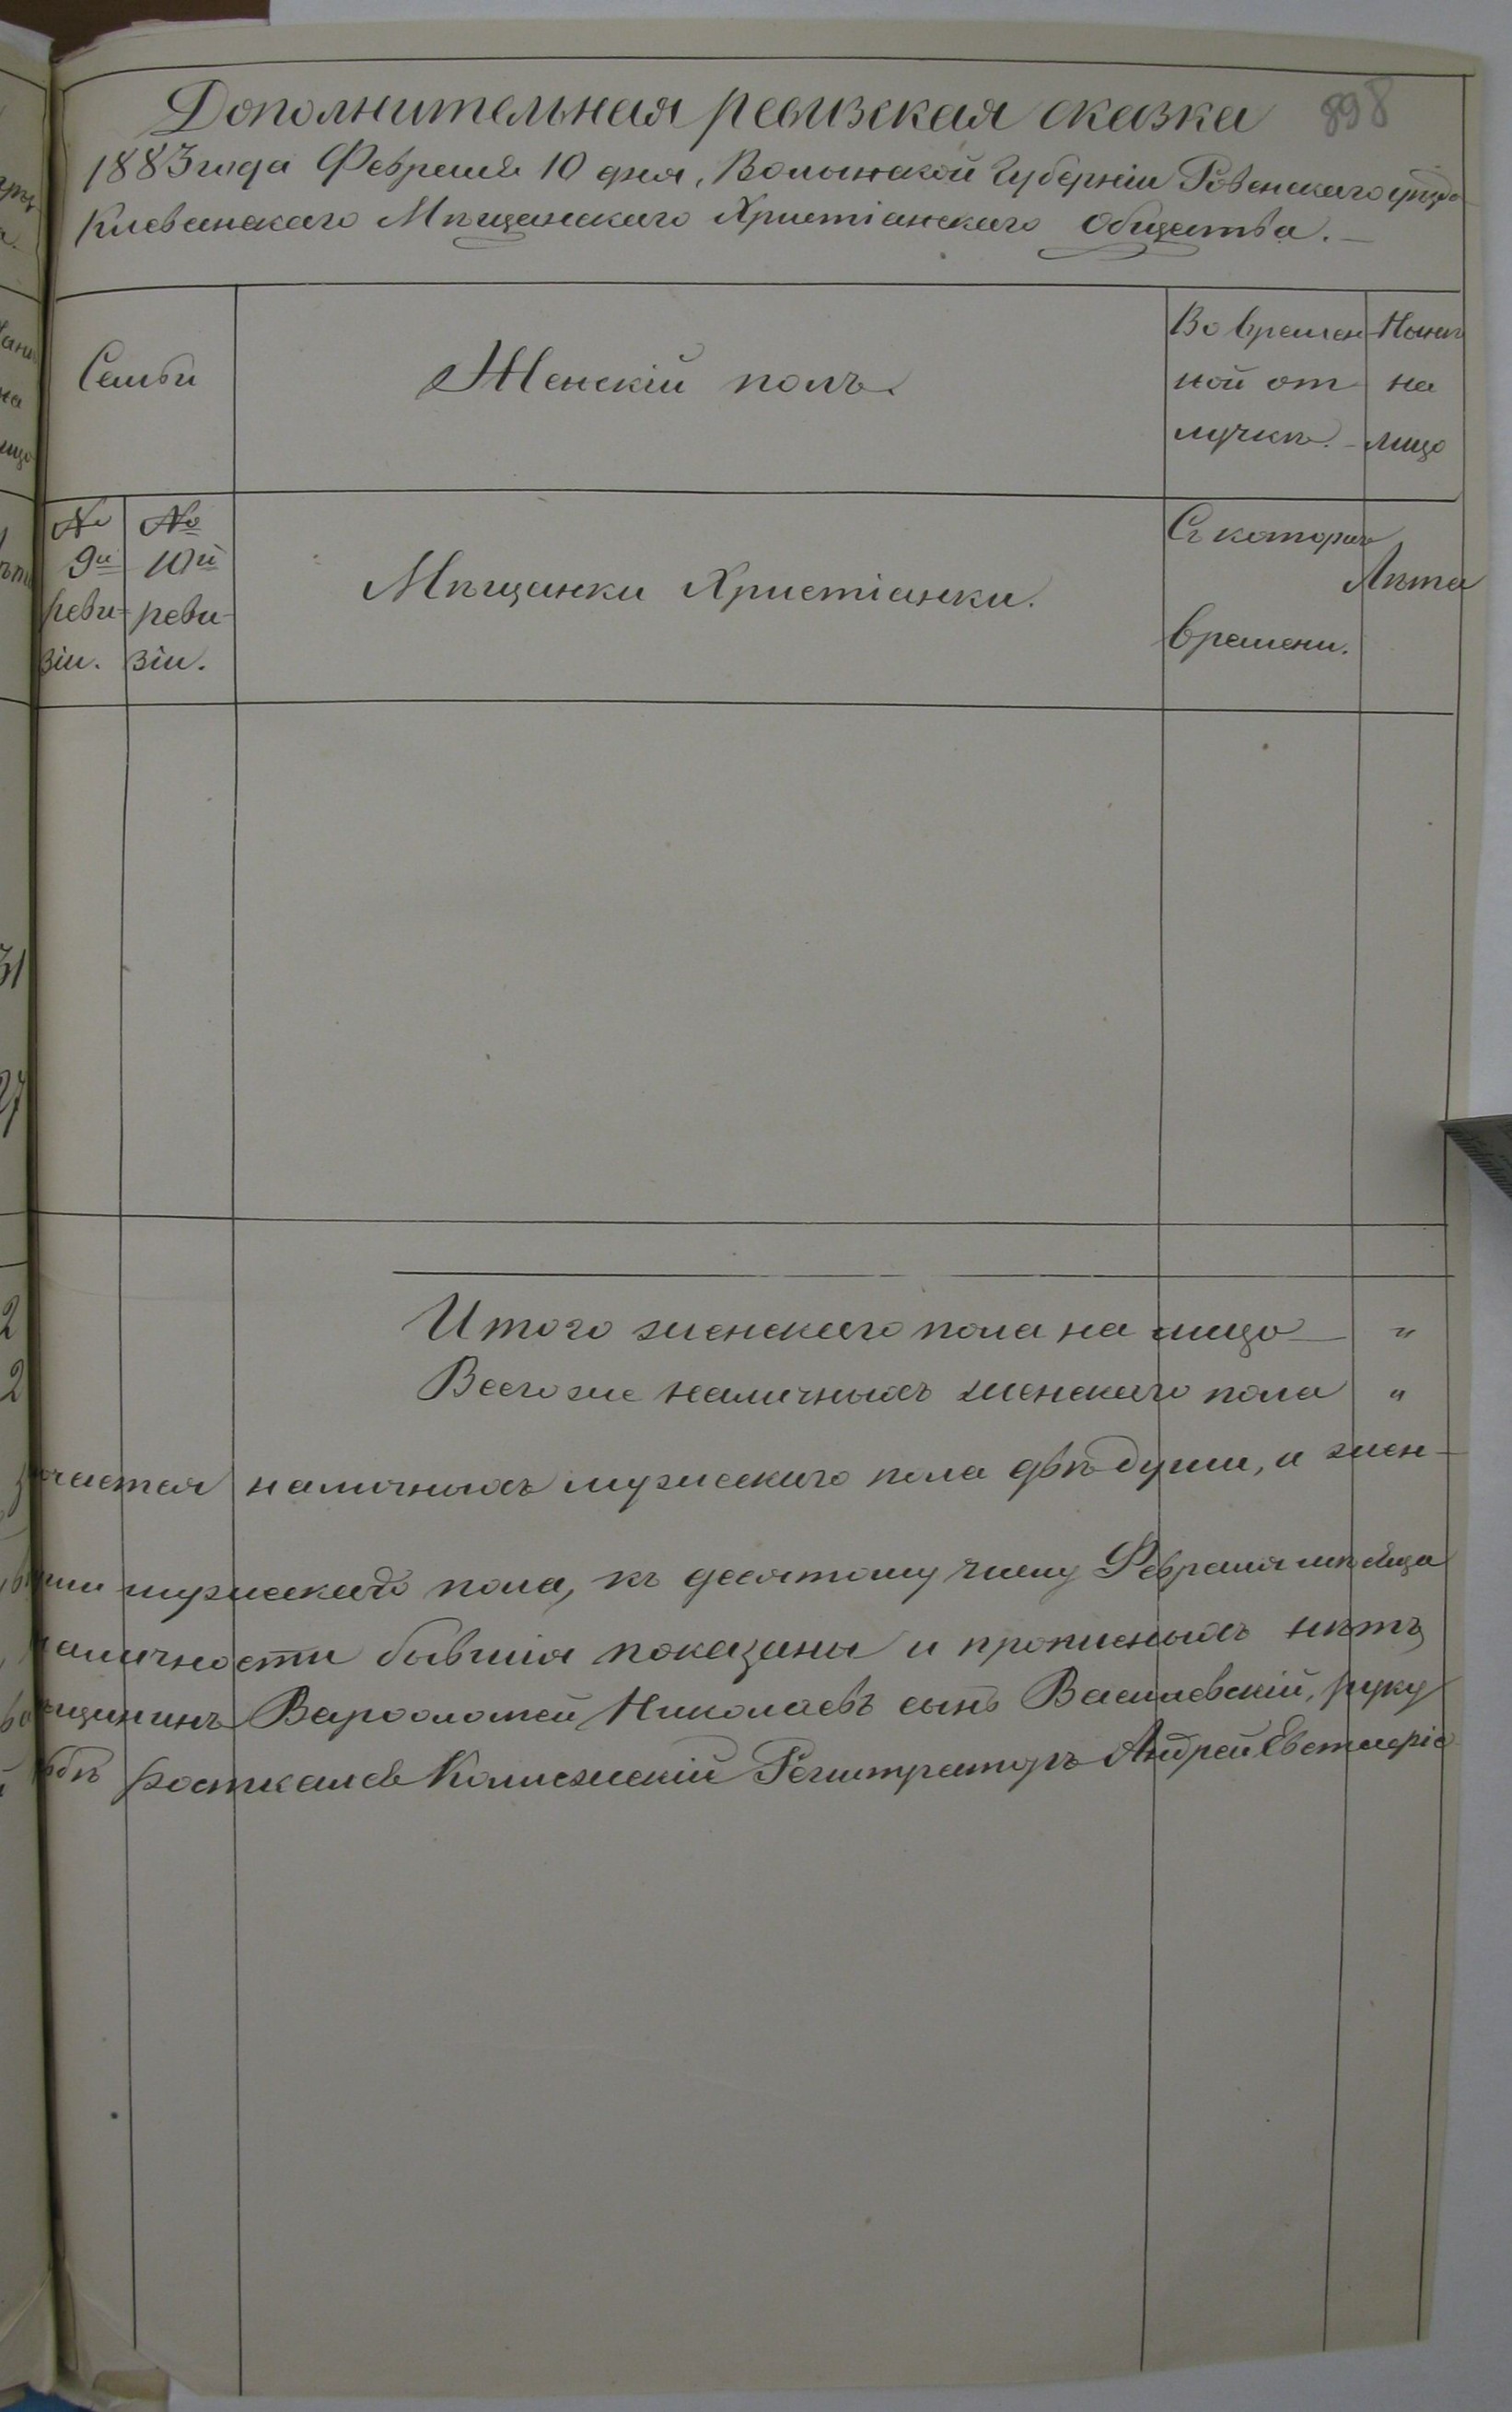 Дополнительная ревизская сказка 898
1883 года Февраля 10 дня, Волынской Губерніи Ровенскаго уѣзда
Клеванскаго Мѣщанскаго Христіанскаго Общества.
Семьи
Женскій полъ.
Во времен
ной от
лучкѣ.
Нынѣ
на
лицо
№
9й
реви-
зіи.
№
10й
реви-
зіи.
Мѣщанки Христіанки.
Съ котораго
времени.
Лѣта
31
27
2
2
Итого женскаго пола на лицо „
Всего же наличныхъ женскаго пола „
наличныхъ мужескаго пола двѣ души, и жен-
мужескаго пола, къ десятому числу Февраля мѣсяца
наличности бывшія показаны и прописныхъ нѣтъ
Варфоломей Николаевъ сынъ Василевскій, руку
Коллежскій Регистраторъ Андрей